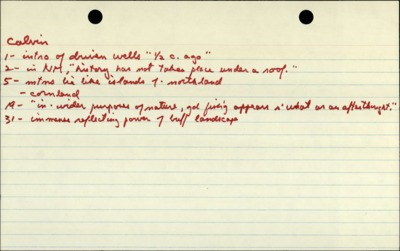 Calvin
1- intro of driven wells "1/2 c. ago"
2- in NM, "history has not taken place under a roof."
5- mtns lie like islands of northland
- cornland
19- "in wider purposes of nature, appears as an afterthought."
31- immense reflecting power of buff landscape